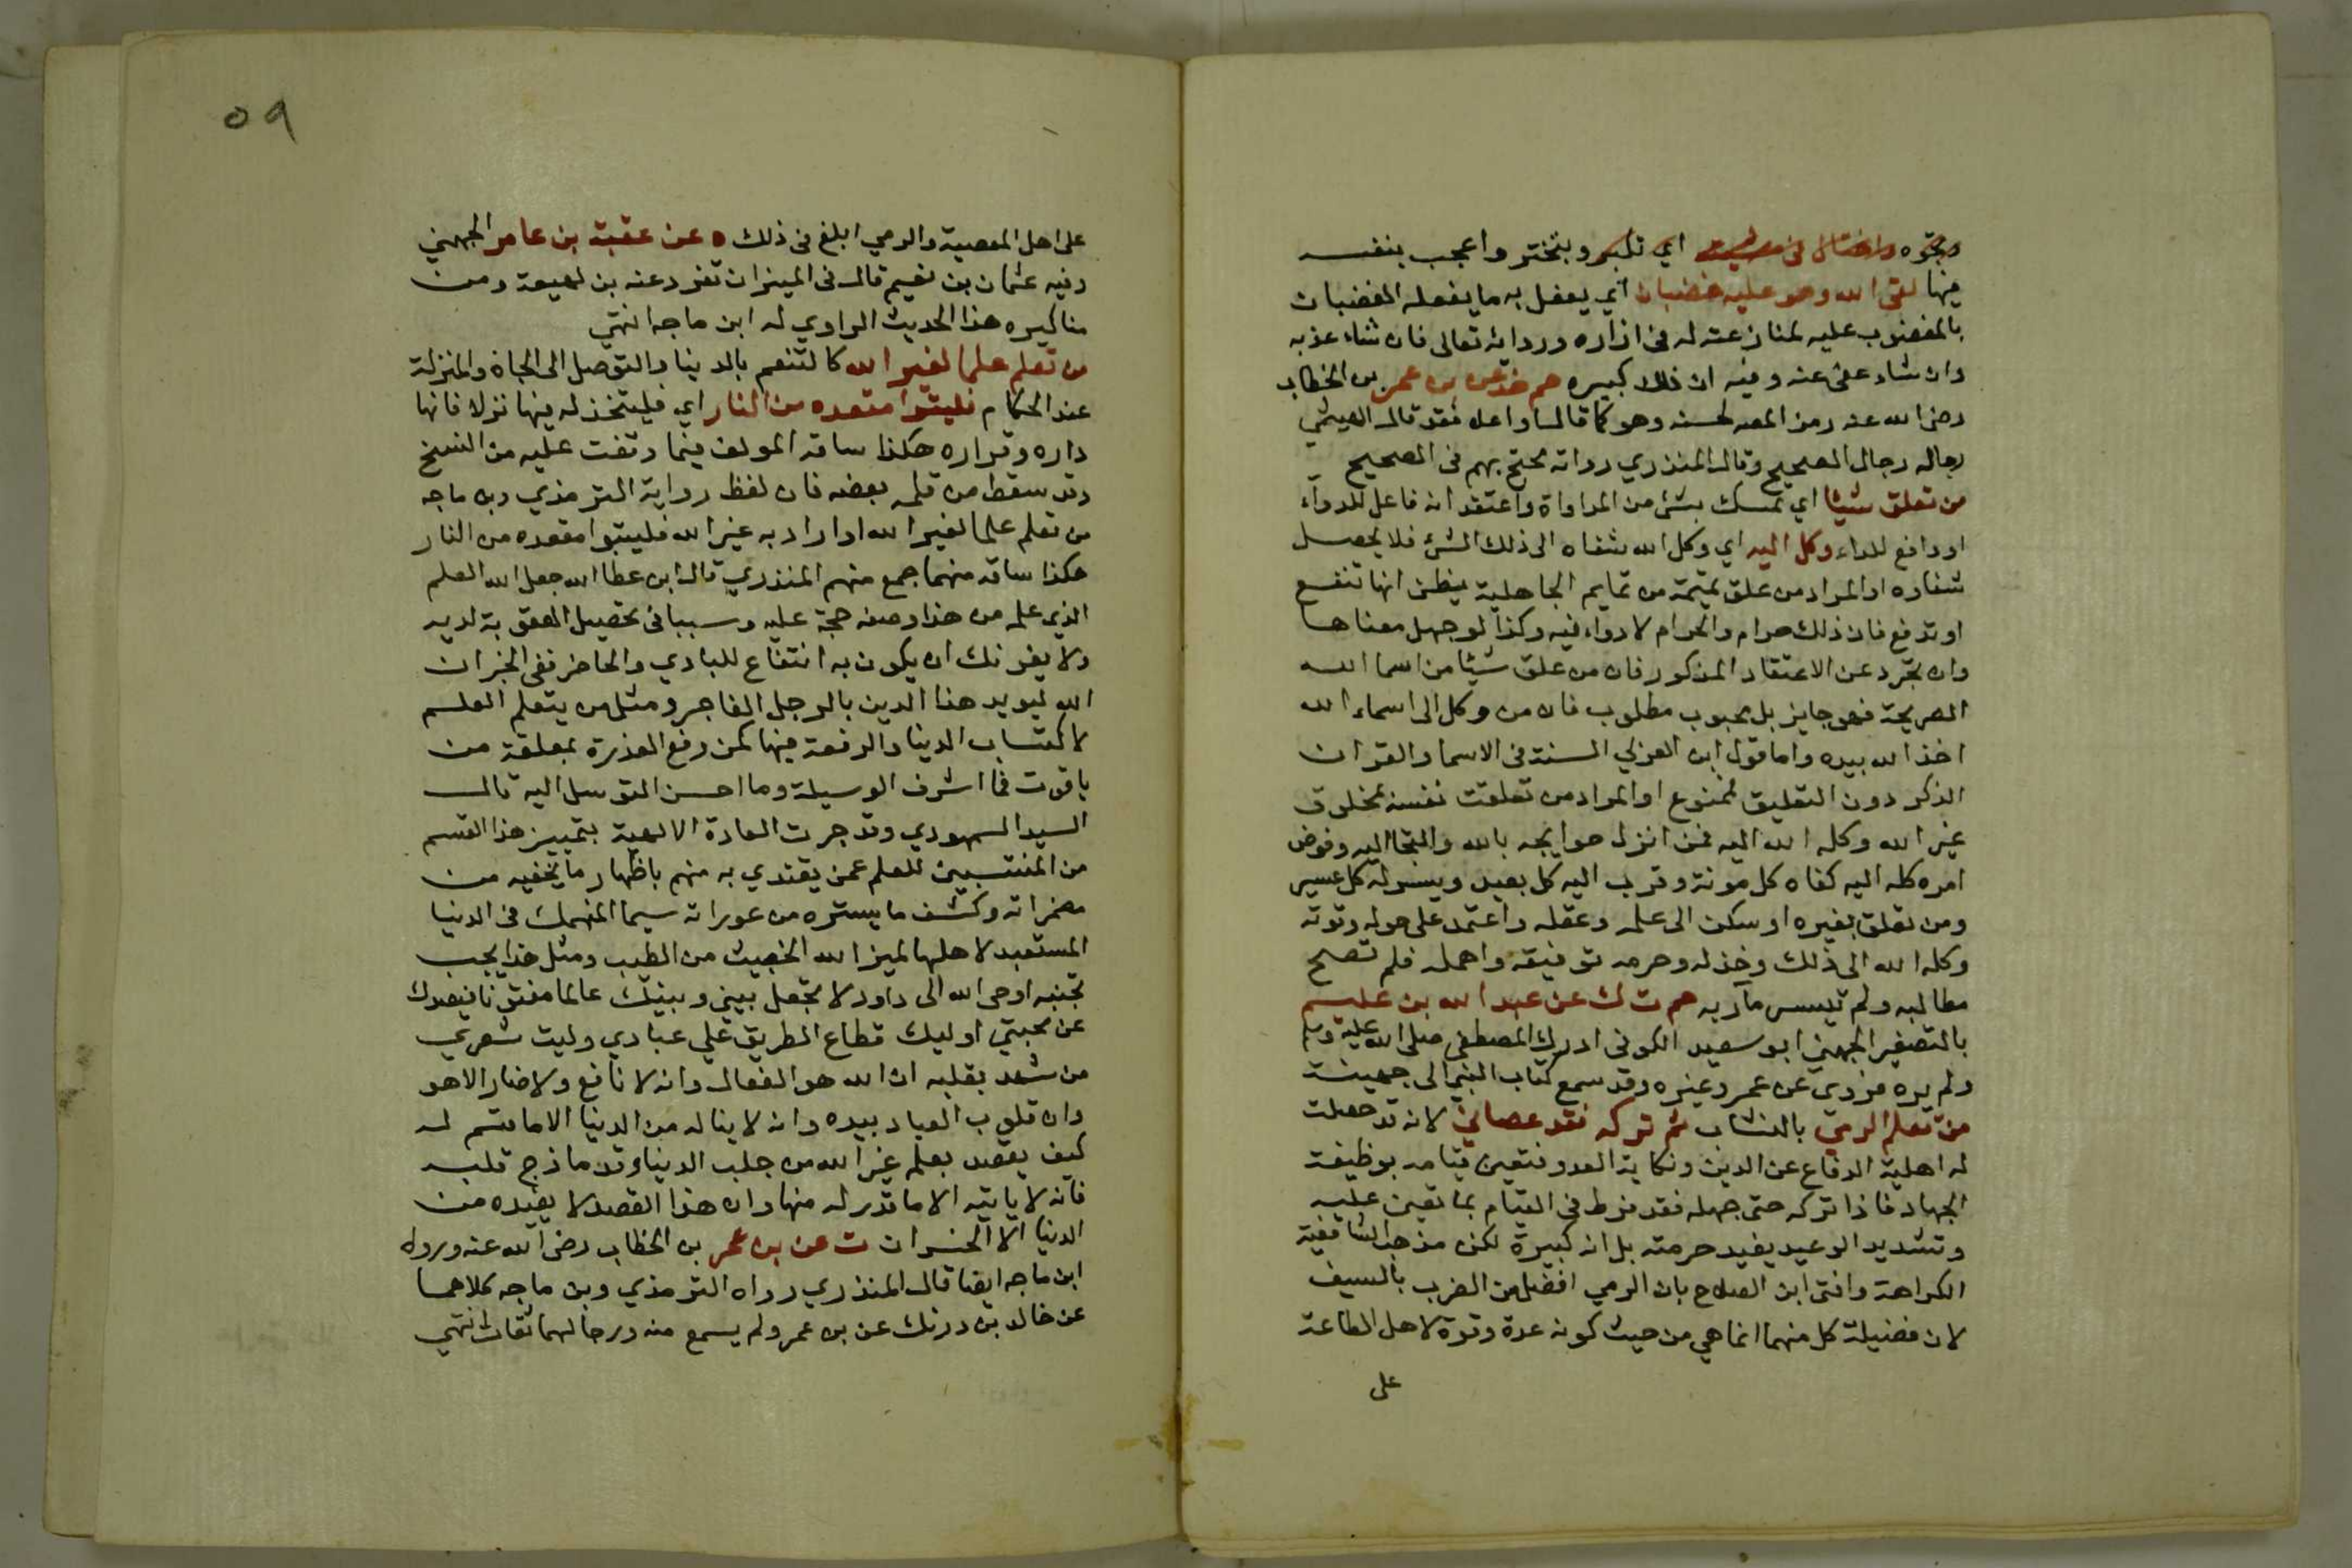 ونحوه واختال في مشيته اي تكبر وتبختر واعجب بنفسه
فيها لقى الله وهو عليه غضبان اي يفعل به ما يفعله الغضبان
بالمغضوب عليه لمنازعته له في ازاره وردائه تعالى فان شاء عذبه
وان شاء عفى عنه وفيه ان ذلك كبيره حم خد عن بن عمر بن الخطاب
رضى الله عنه رمز المص لحسنه وهو كما قال او اعلا فقد قال الهيثمي
رجاله رجال الصحيح وقال المنذري رواته محتج بهم في الصحيح
من تعلق شيئا اي تمسك بشئ من المداواة واعتقد انه فاعل للدوآء
او دافع للداء وكل اليه اي وكل الله شفاه الى ذلك الشئ فلا يحصل
شفاوه او المراد من علق تميمة من تمايم الجاهلية يظن انها تنفع
او تدفع فان ذلك حرام والحرام لا دواء فيه وكذا لو جهل معناها
وان تجرد عن الاعتقاد المذكور فان من علق شيئا من اسما الله
الصريحة فهو جايز بل محبوب مطلوب فان من وكل الى اسماء الله
اخذ الله بيده واما قول ابن العربي السنة في الاسما والقران
الذكر دون التعليق فممنوع او المراد من تعلقت نفسه بمخلوق
غير الله وكله الله اليه فمن انزل حوايجه بالله والتجا اليه وفوض
امره كله اليه كفاه كل مونة وقرب اليه كل بعيد ويسر له كل عسير
ومن تعلق بغيره او سكن الى علمه وعقله واعتمد على حوله وقوته
وكله الله الى ذلك وخذله وحرمه توفيقه واهمله فلم تصح
مطالبه ولم تتيسر مآربه حم ت ك عن عبد الله بن عليم
بالتصغير الجهني ابو سعيد الكوفى ادرك المصطفى صلى الله عليه وسلم
ولم يره فروى عن عمر وغيره وقد سمع كتاب النبي الى جهينة
من تعلم الرمي بالنشاب ثم تركه فقد عصاني لانه قد حصلت
له اهلية الدفاع عن الدين ونكاية العدو فتعين قيامه بوظيفة
الجهاد فاذا تركه حتى جهله فقد فرط في القيام بما تعين عليه
وتشديد الوعيد يفيد حرمته بل انه كبيرة لكن مذهب الشافعية
الكراهة وافتى ابن الصلاح بان الرمي افضل من الضرب بالسيف
لان فضيلة كل منهما انما هي من حيث كونه عدة وقوة لاهل الطاعة
على
٥٩
على اهل المعصية والرمي ابلغ في ذلك ه عن عقبة بن عامر الجهني
وفيه عثمان بن نعيم قال في الميزان تفرد عنه بن لهيعة ومن
مناكيره هذا الحديث الراوي له ابن ماجه انتهي
من تعلم علما لغير الله كالتنعم بالدينا والتوصل الى الجاة والمنزلة
عند الحكام فليتبوا مقعده من النار اي فليتخذ له فيها نزلا فانها
داره وقراره هكذا ساقه المولف فيما وقفت عليه من النسخ
وقد سقط من قلمه بعضه فان لفظ رواية الترمذي وبن ماجه
من تعلم علما لغير الله او اراد به غير الله فليتبوا مقعده من النار
هكذا ساقه منهما جمع منهم المنذري قال ابن عطا الله جعل الله العلم
الذي علمه من هذا وصفه حجة عليه وسببا في تحصيل العقوبة لديه
ولا يغرنك ان يكون به انتفاع للبادي والحاضر ففى الخبر ان
الله ليويد هذا الدين بالرجل الفاجر ومثل من يتعلم العلم
لاكتساب الدينا والرفعة فيها كمن رفع العذرة بملعقة من
ياقوت فما اشرف الوسيلة وما احسن المتوسل اليه قال
السيد السمهودي وقد جرت العادة الالهية بتمييز هذا القسم
من المنتسبين للعلم عمن يقتدي به منهم باظهار ما يخفيه من
مضمراته وكشف ما يستره من عوراته سيما المنهمك في الدنيا
المستعبد لاهلها ليميز الله الخبيث من الطيب ومثل هذا يجب
تجنبه اوحى الله الى داود لا تجعل بيني وبينك عالما مفتونا فيصدك
عن محبتي اوليك قطاع الطريق علي عبادي وليت شعري
من شهد بقلبه ان الله هو الفعال وانه لا نافع ولا ضار الا هو
وان قلوب العباد بيده وانه لا يناله من الدنيا الا ما قسم له
كيف يقصد بعلم غير الله من جلب الدينا وقد مازج قلبه
فانه لا ياتيه الا ما قدر له منها وان هذا القصد لا يفيده من
الدنيا الا الخسران ت عن بن عمر بن الخطاب رضى الله عنه ورواه
ابن ماجه ايضا قال المنذري رواه الترمذي وبن ماجه كلاهما
عن خالد بن درنك عن بن عمر ولم يسمع منه ورجالهما ثقات انتهي